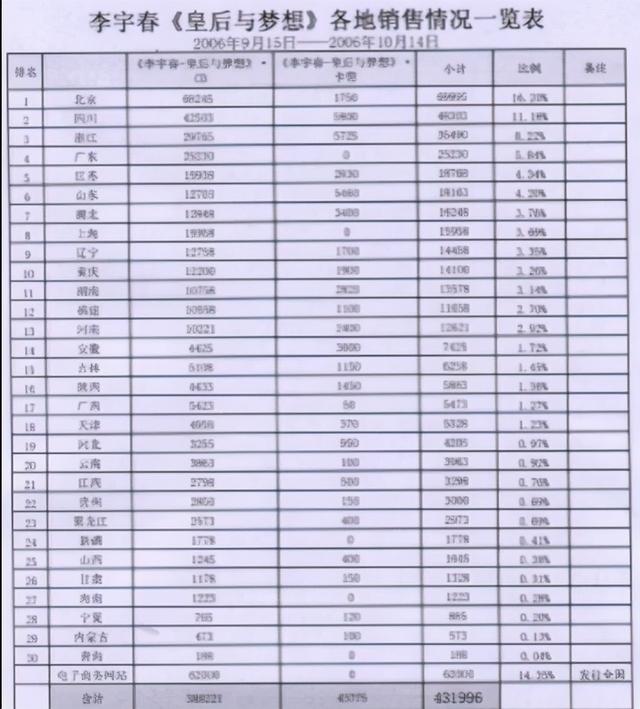 李宇春《皇后与梦想》各地销售情况一览表
2006年9月15日——2006年10月14日
排名 《李宇春-皇后与梦想》·CD 《李宇春-皇后与梦想》·卡带 小计 比例 备注
1 北京 68245 1750 69995 16.20%
2 四川 11.18%
3 浙江 29765 5725 35490 8.22%
4 广东 25230 0 25230 5.84%
5 江苏 4.34%
6 山东 4.20%
7 湖北 3.76%
8 上海 0 3.69%
9 辽宁 12758 1700 14458 3.35%
10 重庆 12200 1900 14100 3.26%
11 湖南 10758 2820 13578 3.14%
12 福建 1100 2.70%
13 河南 10221 2400 12621 2.92%
14 安徽 4425 3000 7425 1.72%
15 吉林 5108 1150 6258 1.45%
16 陕西 1450 1.36%
17 广西 5423 50 5473 1.27%
18 天津 4958 370 5328 1.23%
19 河北 3255 950 4205 0.97%
20 云南 3863 100 3963 0.92%
21 江西 2798 500 3298 0.76%
22 贵州 2850 150 3000 0.69%
23 黑龙江 2573 400 2973 0.69%
24 新疆 1778 0 1778 0.41%
25 山西 1245 400 1645 0.38%
26 甘肃 1178 150 1328 0.31%
27 海南 1223 0 1223 0.28%
28 宁夏 765 120 885 0.20%
29 内蒙古 473 100 573 0.13%
30 青海 188 0 188 0.04%
电子商务网站 62000 0 62000 14.35% 发往全国
合计 431996